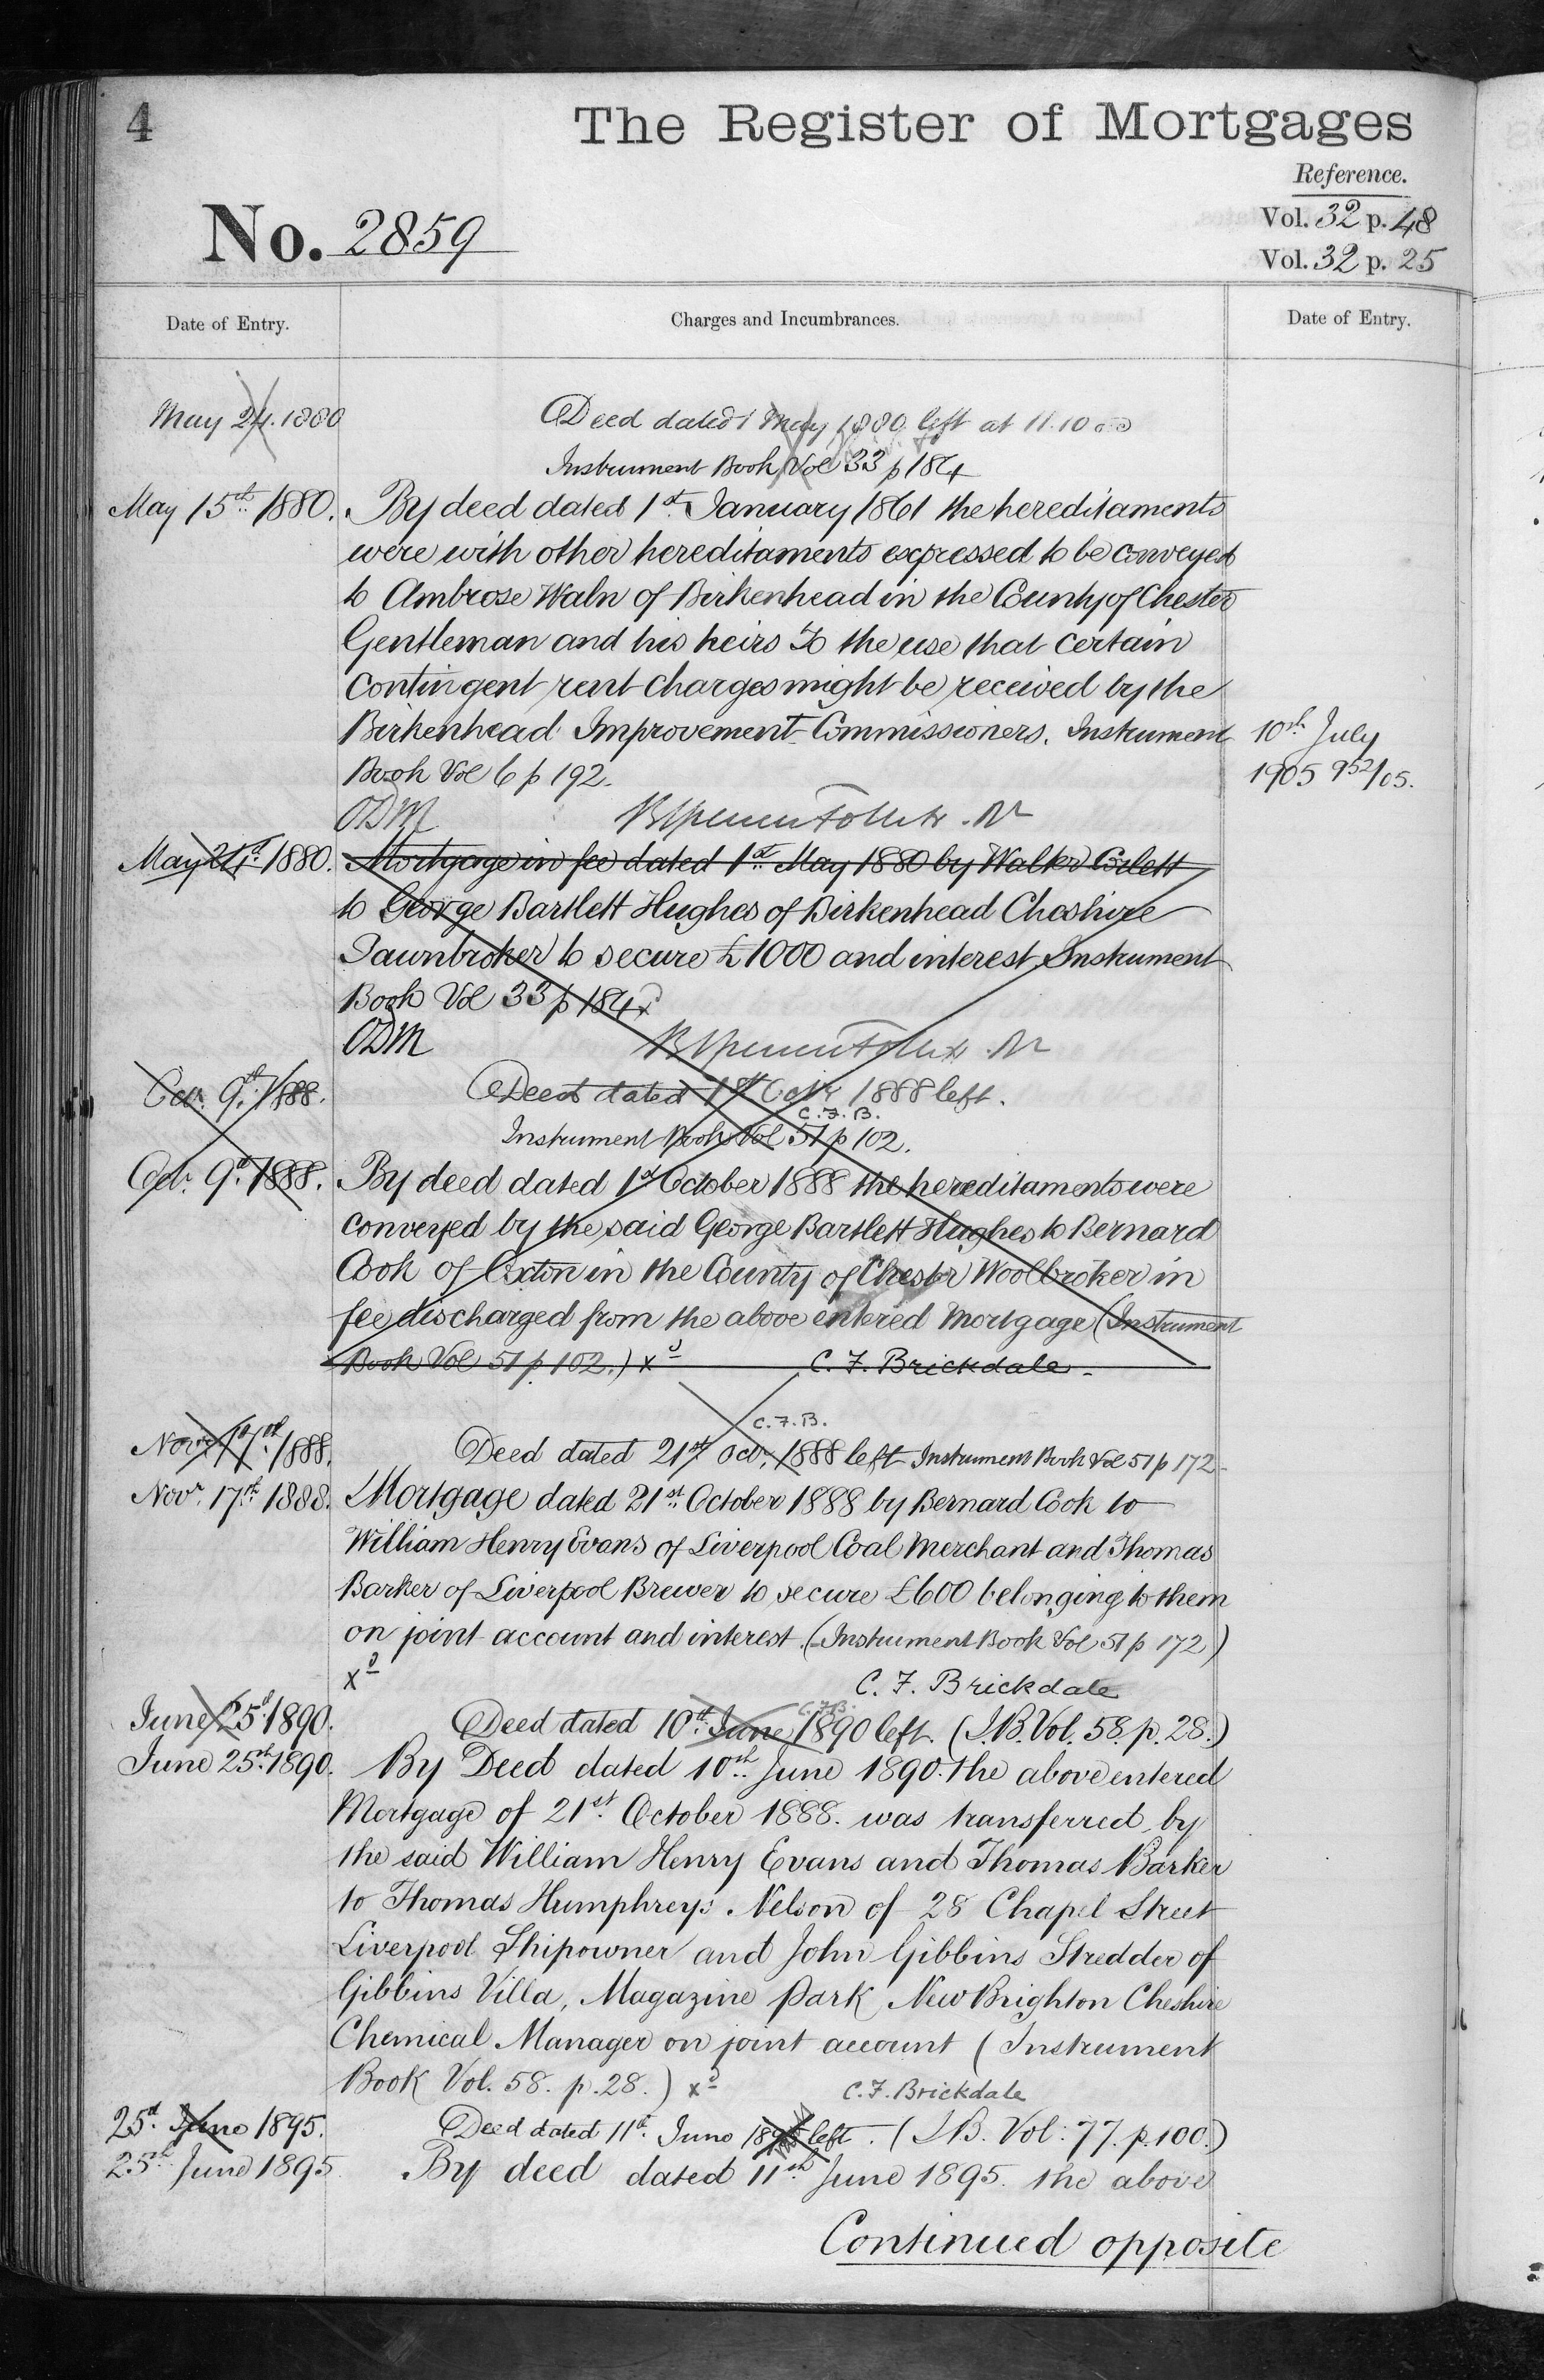 4
The Register of Mortgages
Reference.
No. 2859
Vol. 32 p. 48
Vol. 32 p. 25
Date of Entry.
Charges and Incumbrances.
Date of Entry.
May 24. 1880
Deed dated 1 May 1880 left at 11.10
Instrument Book Vol 33 p 184
May 15th 1880.
By deed dated 1st January 1861 the hereditaments
were with other hereditaments expressed to be conveyed
to Ambrose Waln of Birkenhead in the County of Chester
Gentleman and his heirs To the use that certain
contingent rent charges might be received by the
Birkenhead Improvement Commissioners. Instrument
10th July
Book Vol 6 p 192.
1905 952/05.
ODM
May 24th 1880.
Mortgage in fee dated 1st May 1880 by Walter
to George Bartlett Hughes of Birkenhead Cheshire
Pawnbroker to secure £1000 and interest Instrument
Book Vol 33 p 184 x
ODM
Octr. 9th 1888.
Deed dated 1st Octr 1888 left.
C.F.B.
Instrument Book Vol 51 p 102.
Octr. 9th 1888.
By deed dated 1st October 1888 the hereditaments were
conveyed by the said George Bartlett Hughes to Bernard
Cook of Oxton in the County of Chester Woolbroker in
fee discharged from the above entered Mortgage (Instrument
Book Vol 51 p 102.) xd C. F. Brickdale.
C.F.B.
Novr. 17th 1888.
Deed dated 21st Octr. 1888 left Instrument Book Vol 51 p 172
Novr. 17th 1888.
Mortgage dated 21st October 1888 by Bernard Cook to
William Henry Evans of Liverpool Coal Merchant and Thomas
Barker of Liverpool Brewer to secure £600 belonging to them
on joint account and interest (Instrument Book Vol 51 p 172)
xd
C. F. Brickdale
C.F.B.
June 25th 1890.
Deed dated 10th June 1890 left. (I.B. Vol. 58. p. 28.)
June 25th 1890.
By Deed dated 10th June 1890. the above entered
Mortgage of 21st October 1888. was transferred by
the said William Henry Evans and Thomas Barker
to Thomas Humphreys Nelson of 28 Chapel Street
Liverpool Shipowner and John Gibbins Stredder of
Gibbins Villa, Magazine Park, New Brighton Cheshire
Chemical Manager on joint account (Instrument
Book Vol. 58. p. 28.) xd C.F. Brickdale
25th June 1895.
Deed dated 11th June 1895 left. (I.B. Vol: 77. p. 100.)
25th June 1895
By deed dated 11th June 1895. the above
Continued opposite